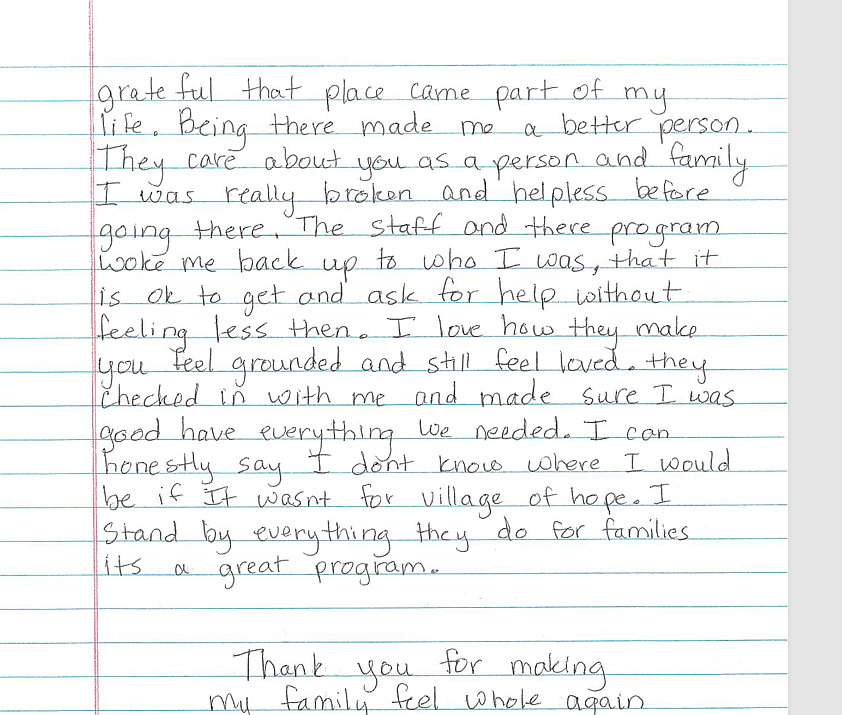 grateful that place came part of my
life. Being there made me a better person.
They care about you as a person and family
I was really broken and helpless before
going there. The staff and there program
woke me back up to who I was, that it
is ok to get and ask for help without
feeling less then. I love how they make
you feel grounded and still feel loved. they
checked in with me and made sure I was
good have everything we needed. I can
honestly say I dont know where I would
be if It wasnt for village of hope. I
Stand by everything they do for families
its a great program.
Thank you for making
my family feel whole again